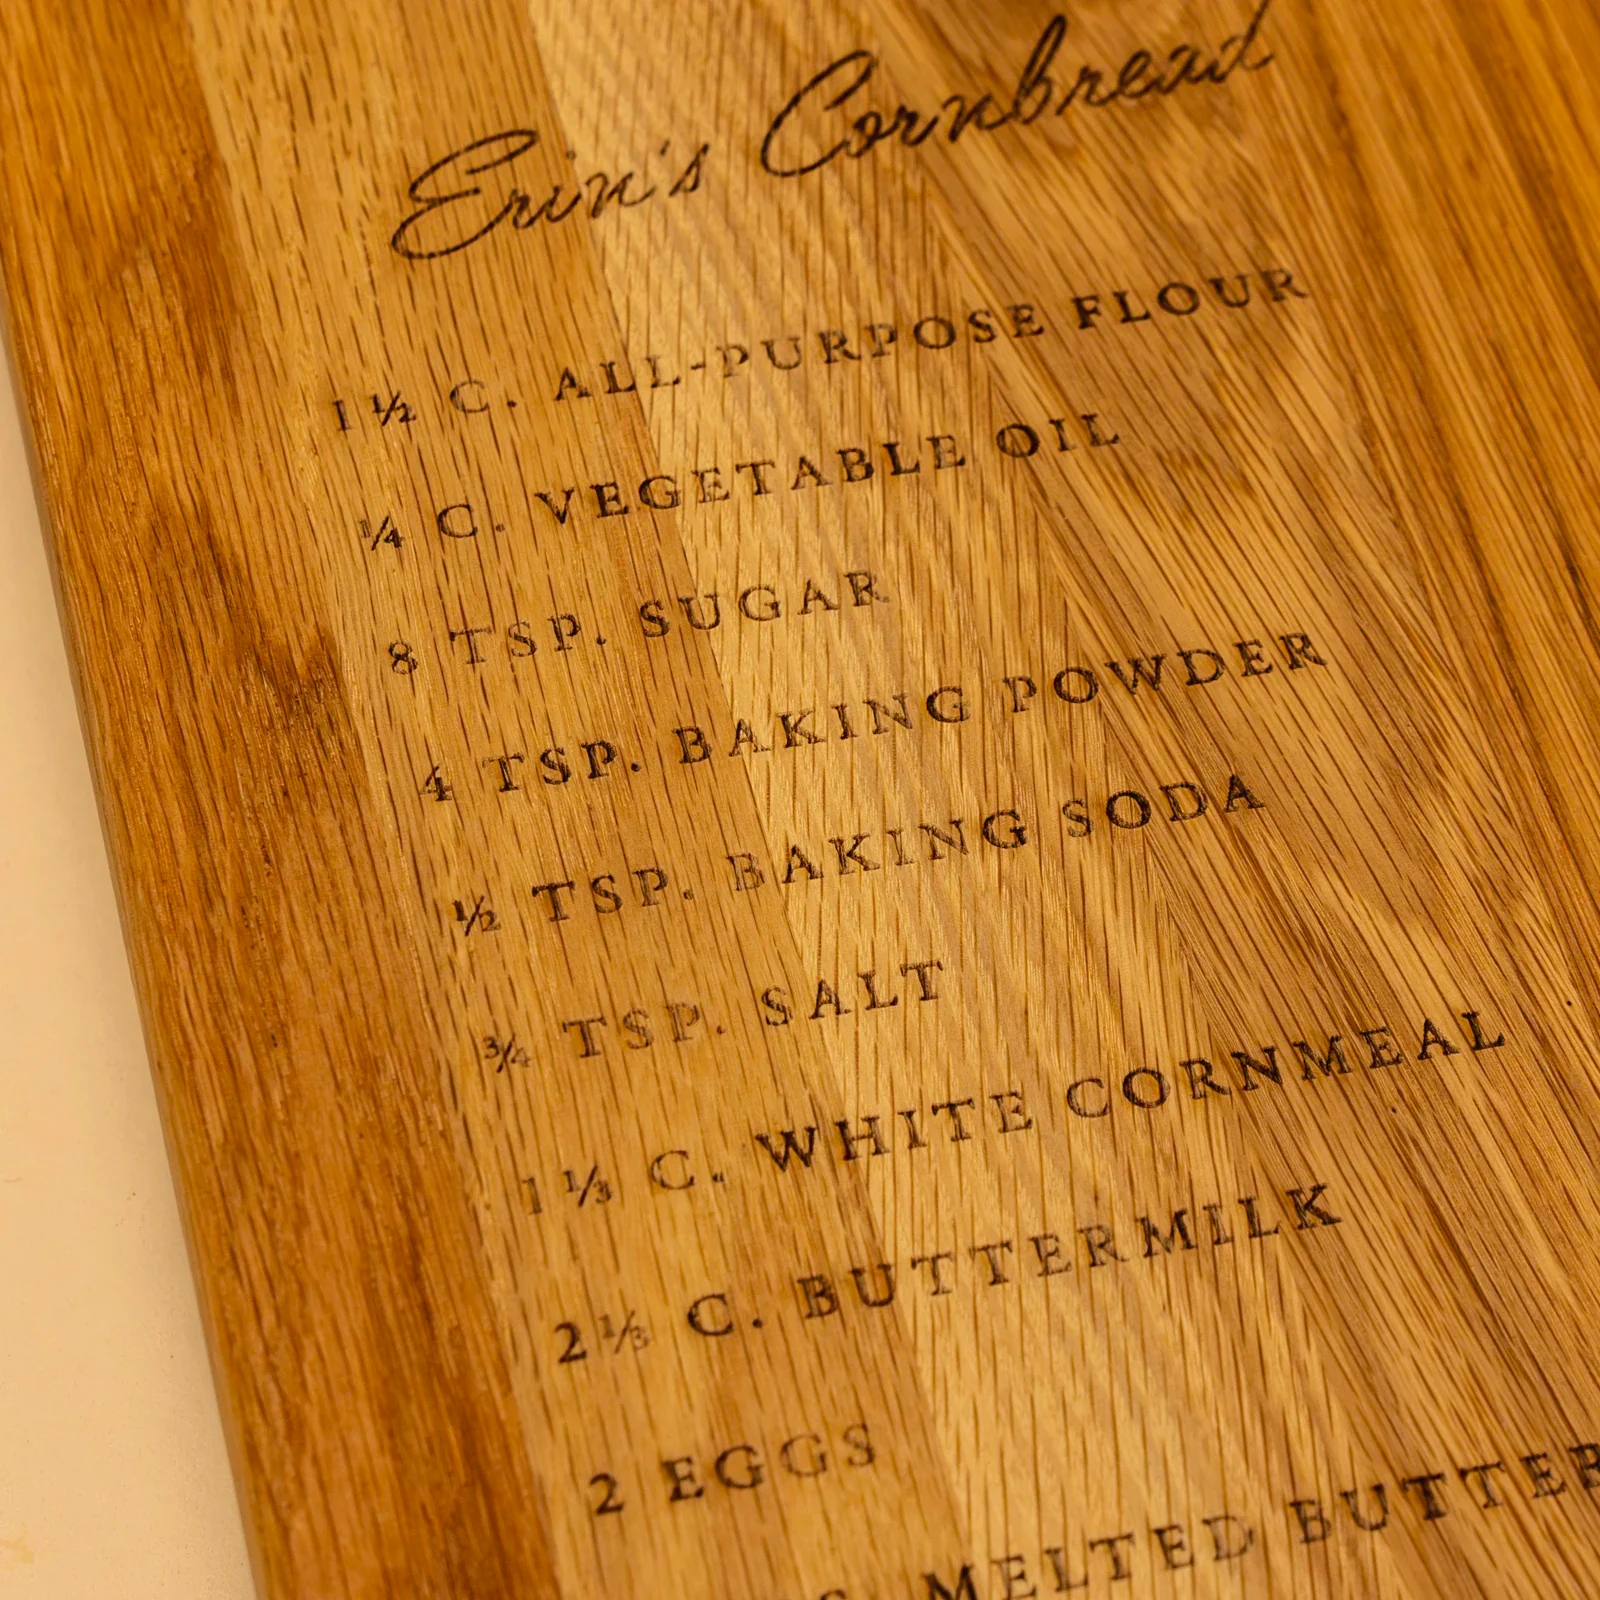 Erin's Cornbread
1 ½ C. ALL-PURPOSE FLOUR
¼ C. VEGETABLE OIL
8 TSP. SUGAR
4 TSP. BAKING POWDER
½ TSP. BAKING SODA
¾ TSP. SALT
1 ⅓ C. WHITE CORNMEAL
2 ⅓ C. BUTTERMILK
2 EGGS
MELTED BUTTER